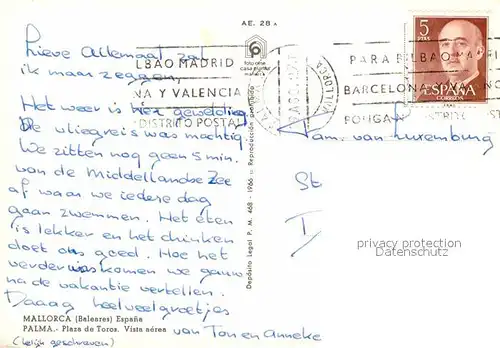 AE. 28 A
Lieve Allemaal zal
ik maar zeggen,
BILBAO MADRID
NA Y VALENCIA
DISTRITO POSTAL
MALLORCA
PARA BILBAO
BARCELONA
PONGA
5
PTAS
ESPAÑA
CORREOS
Het weer is hier geweldig.
De vliegreis was machtig
We zitten nog geen 5 min.
van de Middellandse Zee
af waar we iedere dag
gaan zwemmen. Het eten
is lekker en het drinken
doet ons goed. Hoe het
verder was komen we gauw
na de vakantie vertellen.
Daaag heelveelgroetjes
van Ton en Anneke
(Lelijk geschreven)
Fam. van Luxemburg
St
I
Depósito Legal P. M. 468 - 1966 - Reproducción prohibida
MALLORCA (Baleares) España
PALMA.- Plaza de Toros. Vista aérea
privacy protection
Datenschutz